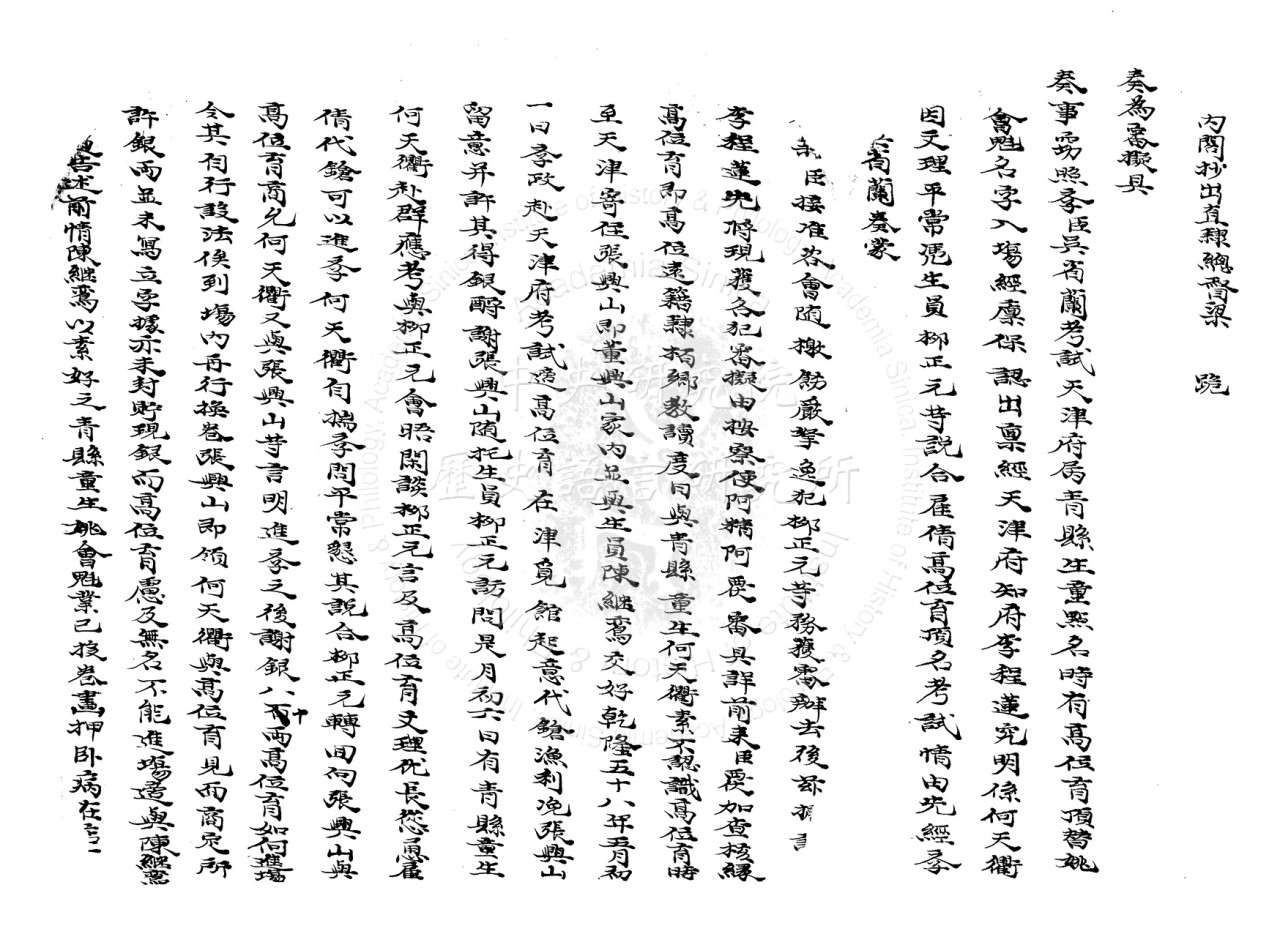 內閣抄出直隸總督梁 跪
奏為審擬具
奏事竊照學臣吳省蘭考試天津府屬青縣生童點名時有高位育頂替姚
會魁名字入場經廩保認出稟經天津府知府李程蓮究明係何天衢
因文理平常憑生員柳正元等說合雇倩高位育頂名考試情由先經學
臣吳省蘭奏蒙
臣接准咨會隨檄飭嚴拏逸犯柳正元等務獲審辦去後茲據
李程蓮先將現獲各犯審擬由按察使阿精阿覆審具詳前來臣覆加查核緣
高位育即高位遠籍隸栢鄉教讀度日與青縣童生何天衢素不認識高位育時
至天津寄住張興山即董興山家內並與生員陳繼鶚交好乾隆五十八年五月初
一日學政赴天津府考試適高位育在津覓館起意代鎗漁利浼張興山
留意并許其得銀酧謝張興山隨托生員柳正元訪問是月初六日有青縣童生
何天衢赴群應考與柳正元會晤閑談柳正元言及高位育文理优長慫恿雇
倩代鎗可以進學何天衢自揣學問平常懇其說合柳正元轉回向張興山與
高位育商允何天衢又與張興山等言明進學之後謝銀八十兩高位育如何進場
令其自行設法俟到塲內再行換卷張興山即領何天衢與高位育見面商定所
許銀兩並未寫立字據亦未封貯現銀而高位育慮及無名不能進塲適與陳繼鶚
告述前情陳繼鶚以素好之青縣童生姚會魁業已投卷畫押臥病在